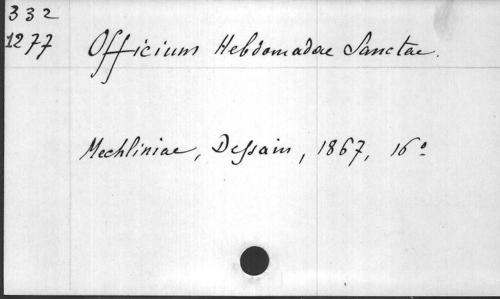 332
1277
Officium Hebdomadae Sanctae.
Mechliniae, Dessain, 1867, 16°